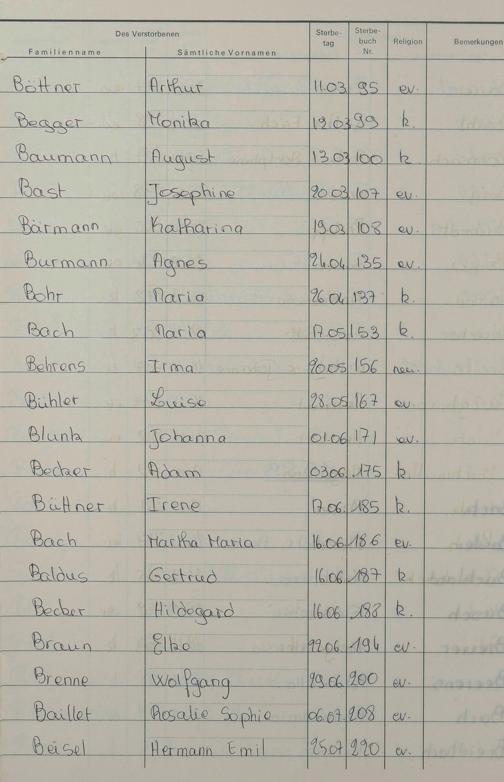 Des Verstorbenen Sterbe- Sterbe-
tag buch Religion Bemerkungen
Familienname Sämtliche Vornamen Nr.
Böttner Arthur 11.03 95 ev.
Begger Monika 12.03 99 k.
Baumann August 13.03 100 k
Bast Josephine 20.03 107 ev.
Bärmann Katharina 19.03 108 ev.
Burmann Agnes 24.04 135 ev.
Bohr Maria 26.04 137 k.
Bach Maria 17.05 153 k.
Behrens Irma 20.05 156
Bühler Luise 28.05 167 ev
Blunk Johanna 01.06 171 ev.
Becker Adam 03.06. 175 k
Büttner Irene 17.06. 185 k.
Bach Martha Maria 16.06. 186 ev.
Baldus Gertrud 16.06 187 k
Becker Hildegard 16.06 188 k.
Braun Elke 22.06 194 ev.
Brenne Wolfgang 29.06 200 ev.
Baillet Rosalie Sophie 06.07. 208 ev.
Beisel Hermann Emil 25.07 220 ev.